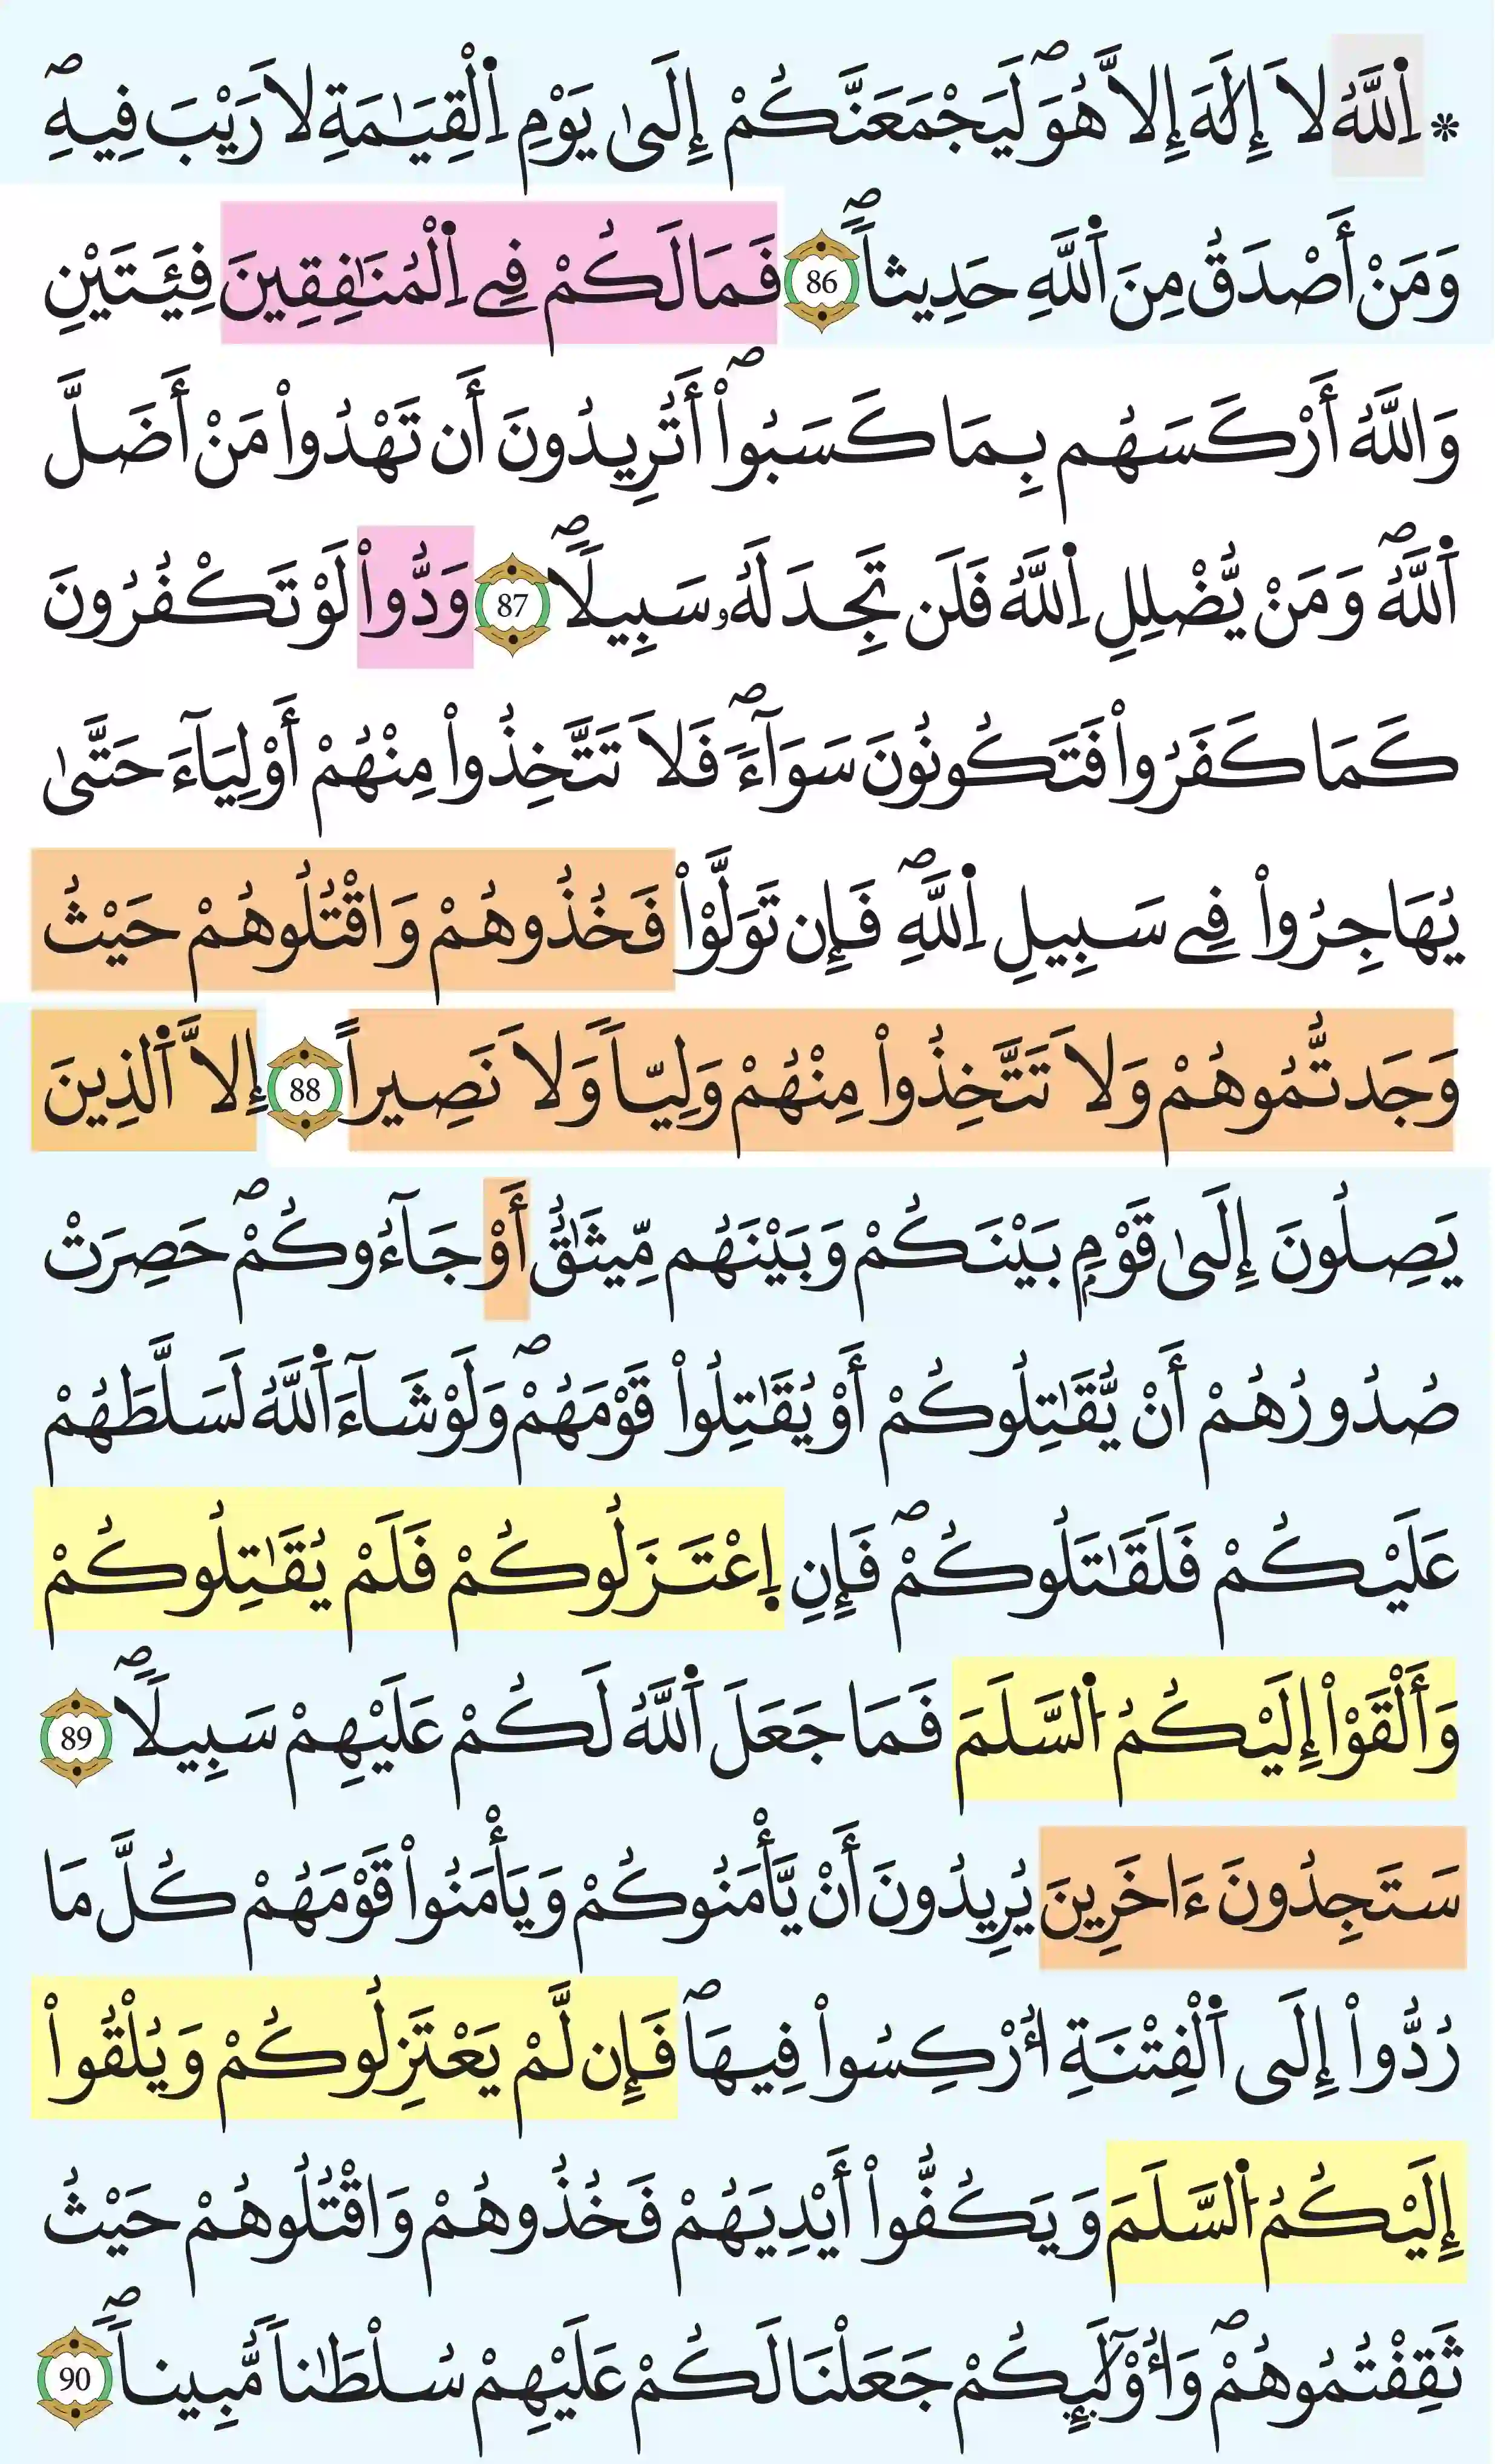 * اَ۬للَّهُ لَا إِلَٰهَ إِلَّا هُوَۖ لَيَجْمَعَنَّكُمْ إِلَىٰ يَوْمِ اِ۬لْقِيَٰمَةِ لَا رَيْبَ فِيهِۖ
وَمَنْ أَصْدَقُ مِنَ اَ۬للَّهِ حَدِيثاٗۖ 86 فَمَا لَكُمْ فِے اِ۬لْمُنَٰفِقِينَ فِئَتَيْنِ
وَاللَّهُ أَرْكَسَهُم بِمَا كَسَبُوٓاْۖ أَتُرِيدُونَ أَن تَهْدُواْ مَنْ أَضَلَّ
اَ۬للَّهُۖ وَمَنْ يُّضْلِلِ اِ۬للَّهُ فَلَن تَجِدَ لَهُۥ سَبِيلاٗۖ 87 وَدُّواْ لَوْ تَكْفُرُونَ
كَمَا كَفَرُواْ فَتَكُونُونَ سَوَآءٗۖ فَلَا تَتَّخِذُواْ مِنْهُمْ أَوْلِيَآءَ حَتَّىٰ
يُهَاجِرُواْ فِے سَبِيلِ اِ۬للَّهِۖ فَإِن تَوَلَّوْاْ فَخُذُوهُمْ وَاقْتُلُوهُمْ حَيْثُ
وَجَدتُّمُوهُمْ وَلَا تَتَّخِذُواْ مِنْهُمْ وَلِيّاٗ وَلَا نَصِيراً 88 إِلَّا اَ۬لذِينَ
يَصِلُونَ إِلَىٰ قَوْمِۢ بَيْنَكُمْ وَبَيْنَهُم مِّيثَٰقٌ أَوْ جَآءُوكُمْۖ حَصِرَتْ
صُدُورُهُمْ أَنْ يُّقَٰتِلُوكُمْ أَوْ يُقَٰتِلُواْ قَوْمَهُمْۖ وَلَوْ شَآءَ اَ۬للَّهُ لَسَلَّطَهُمْ
عَلَيْكُمْ فَلَقَٰتَلُوكُمْۖ فَإِنِ اِ۪عْتَزَلُوكُمْ فَلَمْ يُقَٰتِلُوكُمْ
وَأَلْقَوْاْ إِلَيْكُمُ اُ۬لسَّلَمَ فَمَا جَعَلَ اَ۬للَّهُ لَكُمْ عَلَيْهِمْ سَبِيلاٗۖ 89
سَتَجِدُونَ ءَاخَرِينَ يُرِيدُونَ أَنْ يَّأْمَنُوكُمْ وَيَأْمَنُواْ قَوْمَهُمْ كُلَّ مَا
رُدُّواْ إِلَى اَ۬لْفِتْنَةِ أُرْكِسُواْ فِيهَاۖ فَإِن لَّمْ يَعْتَزِلُوكُمْ وَيُلْقُواْ
إِلَيْكُمُ اُ۬لسَّلَمَ وَيَكُفُّواْ أَيْدِيَهُمْ فَخُذُوهُمْ وَاقْتُلُوهُمْ حَيْثُ
ثَقِفْتُمُوهُمْۖ وَأُوْلَٰٓئِكُمْ جَعَلْنَا لَكُمْ عَلَيْهِمْ سُلْطَٰناٗ مُّبِيناٗۖ 90